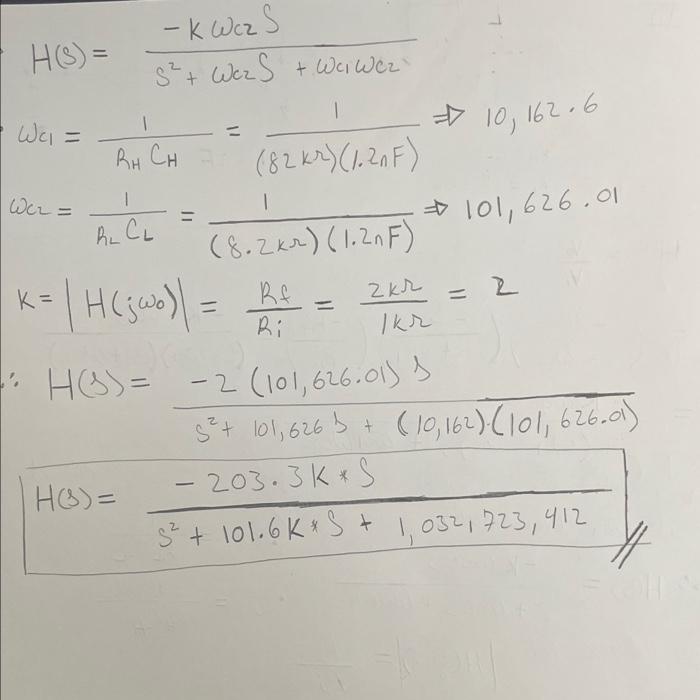 H(S) = -K ωc2 S / S² + ωc2 S + ωc1 ωc2
ωc1 = 1 / RH CH = 1 / (82 kΩ)(1.2nF) ⇒ 10,162.6
ωc2 = 1 / RL CL = 1 / (8.2kΩ)(1.2nF) ⇒ 101,626.01
K = |H(jω0)| = Rf / Ri = 2kΩ / 1kΩ = 2
∴ H(S) = -2 (101,626.01) S / S² + 101,626 S + (10,162)·(101,626.01)
H(S) = -203.3K * S / S² + 101.6K * S + 1,032,723,412